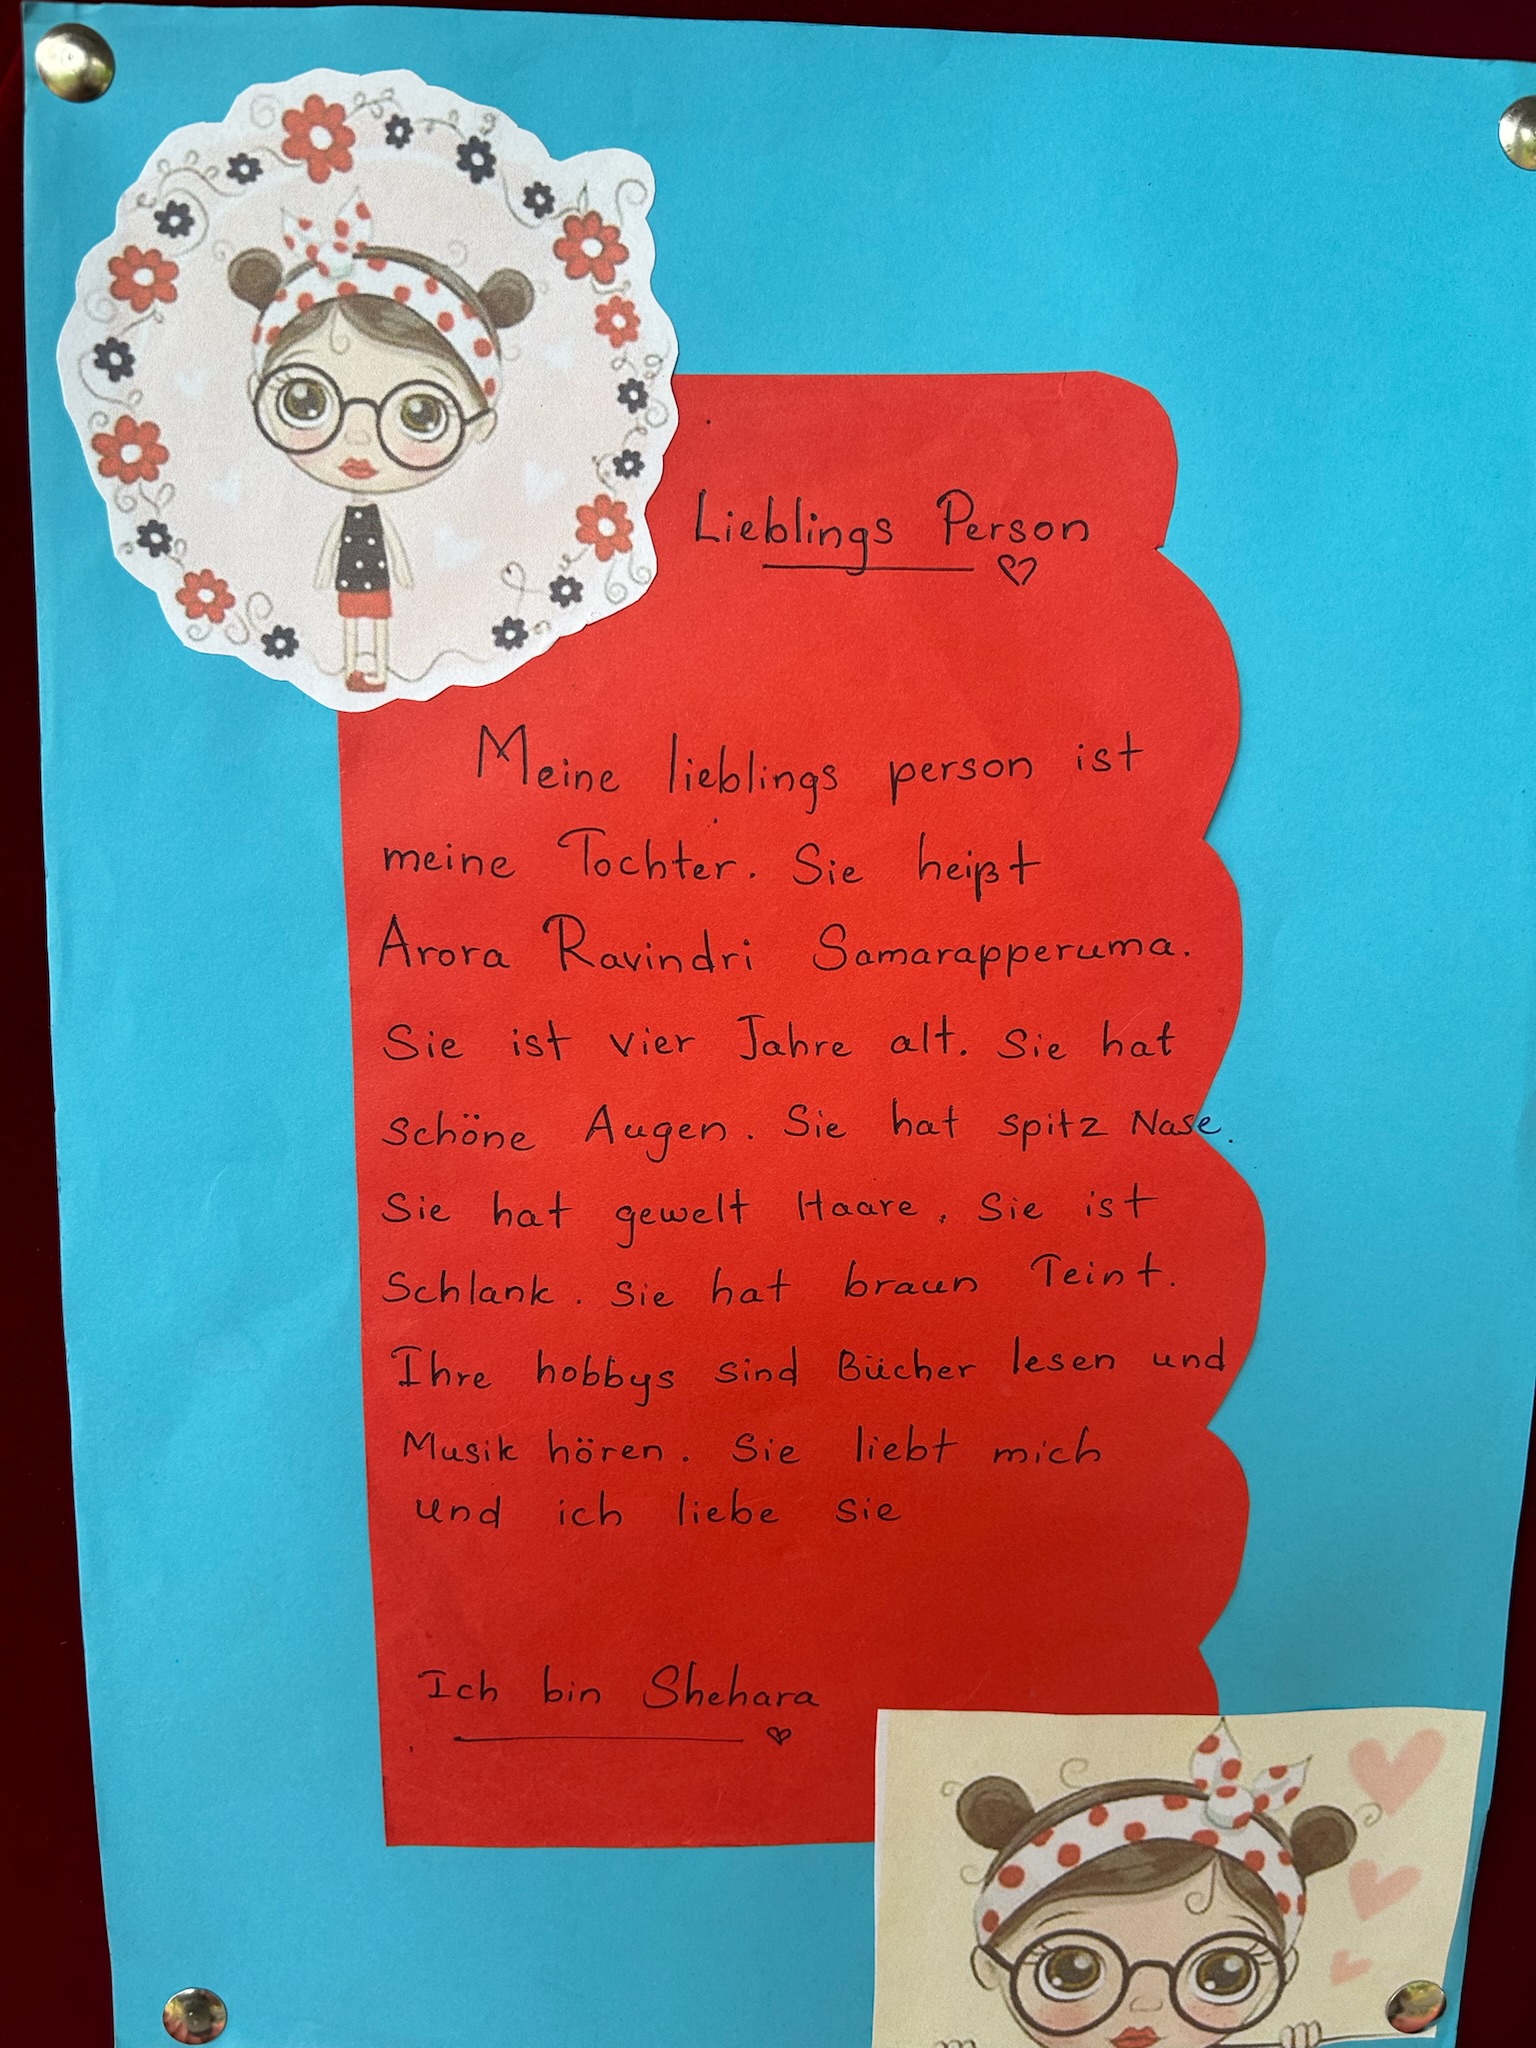 Lieblings Person
Meine lieblings person ist
meine Tochter. Sie heißt
Arora Ravindri Samarapperuma.
Sie ist vier Jahre alt. Sie hat
schöne Augen. Sie hat spitz Nase.
Sie hat gewelt Haare. Sie ist
Schlank. Sie hat braun Teint.
Ihre hobbys sind Bücher lesen und
Musik hören. Sie liebt mich
und ich liebe sie
Ich bin Shehara